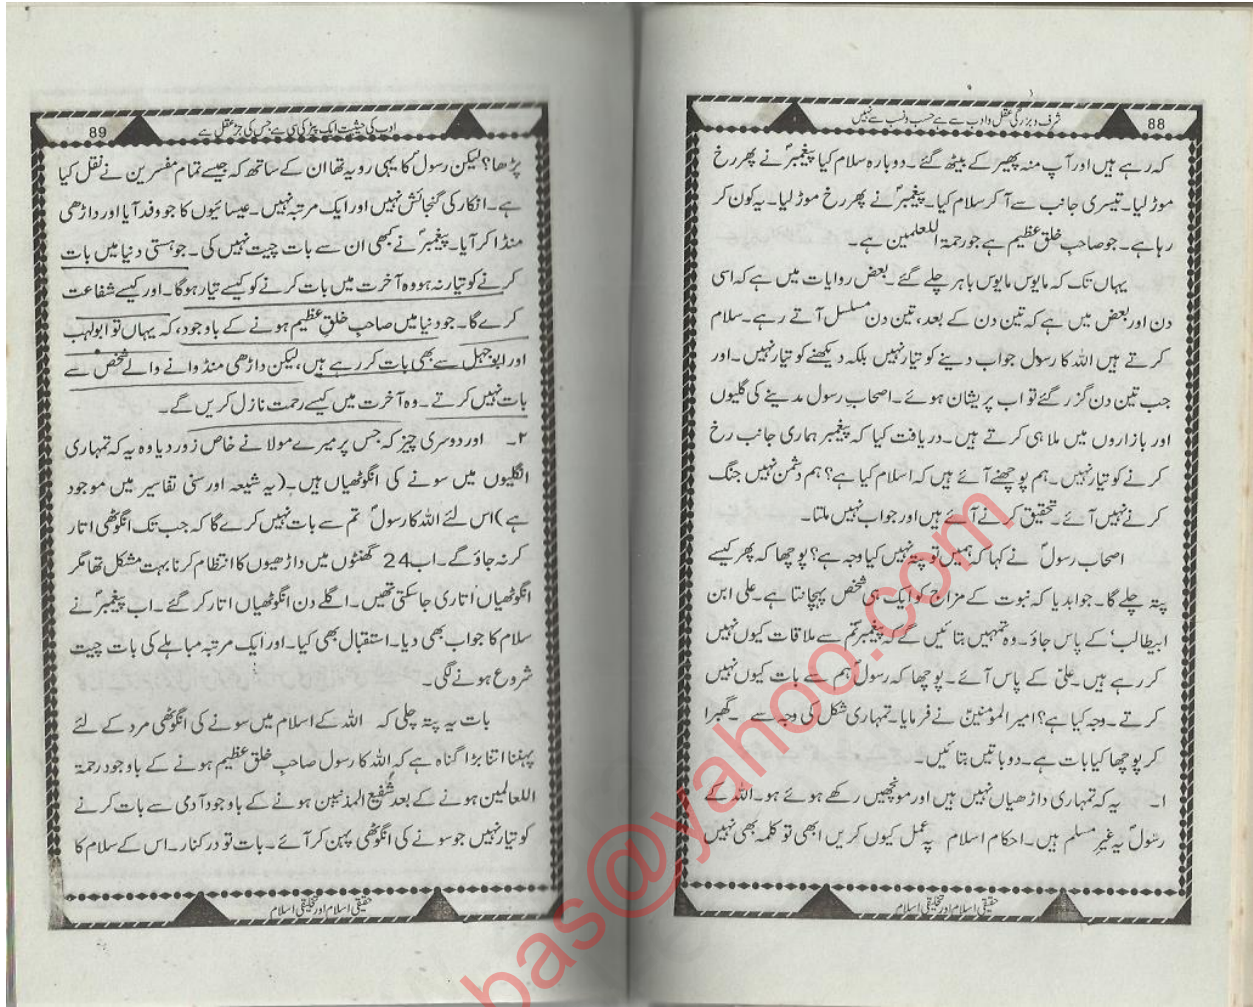 شرف و بزرگی عقل و ادب سے ہے حسب و نسب سے نہیں
88
کہ رہے ہیں اور آپ منہ پھیر کے بیٹھ گئے۔ دوبارہ سلام کیا پیغمبرؐ نے پھر رخ
موڑ لیا۔ تیسری جانب سے آ کر سلام کیا۔ پیغمبرؐ نے پھر رخ موڑ لیا۔ یہ کون کر
رہا ہے۔ جو صاحبِ خلق عظیم ہے جو رحمۃ اللعلمین ہے۔
یہاں تک کہ مایوس مایوس باہر چلے گئے۔ بعض روایات میں ہے کہ اسی
دن اور بعض میں ہے کہ تین دن کے بعد، تین دن مسلسل آتے رہے۔ سلام
کرتے ہیں اللہ کا رسول جواب دینے کو تیار نہیں بلکہ دیکھنے کو تیار نہیں۔ اور
جب تین دن گزر گئے تو اب پریشان ہوئے۔ اصحابِ رسول مدینے کی گلیوں
اور بازاروں میں ملا ہی کرتے ہیں۔ دریافت کیا کہ پیغمبر ہماری جانب رخ
کرنے کو تیار نہیں۔ ہم پوچھنے آئے ہیں کہ اسلام کیا ہے؟ ہم دشمن نہیں جنگ
کرنے نہیں آئے۔ تحقیق کرنے آئے ہیں اور جواب نہیں ملتا۔
اصحاب رسولؐ نے کہا کہ ہمیں تو پتہ نہیں کیا وجہ ہے؟ پوچھا کہ پھر کیسے
پتہ چلے گا۔ جواب دیا کہ نبوت کے مزاج کو ایک ہی شخص پہچانتا ہے۔ علی ابن
ابیطالبؑ کے پاس جاؤ۔ وہ تمہیں بتائیں گے کہ پیغمبرؐ تم سے ملاقات کیوں نہیں
کر رہے ہیں۔ علیؑ کے پاس آئے۔ پوچھا کہ رسولؐ ہم سے بات کیوں نہیں
کرتے۔ وجہ کیا ہے؟ امیر المؤمنینؑ نے فرمایا۔ تمہاری شکل کی وجہ سے ۔ گھبرا
کر پوچھا کیا بات ہے۔ دو باتیں بتائیں۔
۱۔ یہ کہ تمہاری داڑھیاں نہیں ہیں اور مونچھیں رکھے ہوئے ہو۔ اللہ کے
رسولؐ یہ غیر مسلم ہیں۔ احکام اسلام پہ عمل کیوں کریں ابھی تو کلمہ بھی نہیں
حقیقی اسلام اور تخلیقی اسلام
ادب کی حیثیت ایک پیڑ کی سی ہے جس کی جڑ عقل ہے
89
پڑھا؟ لیکن رسولؐ کا یہی رویہ تھا ان کے ساتھ کہ جیسے تمام مفسرین نے نقل کیا
ہے۔ انکار کی گنجائش نہیں اور ایک مرتبہ نہیں۔ عیسائیوں کا جو وفد آیا اور داڑھی
منڈا کر آیا۔ پیغمبرؐ نے کبھی ان سے بات چیت نہیں کی۔ جو ہستی دنیا میں بات
کرنے کو تیار نہ ہو وہ آخرت میں بات کرنے کو کیسے تیار ہو گا۔ اور کیسے شفاعت
کرے گا۔ جو دنیا میں صاحبِ خلقِ عظیم ہونے کے باوجود، کہ یہاں تو ابولہب
اور ابوجہل سے بھی بات کر رہے ہیں، لیکن داڑھی منڈوانے والے شخص سے
بات نہیں کرتے۔ وہ آخرت میں کیسے رحمت نازل کریں گے۔
۲۔ اور دوسری چیز کہ جس پر میرے مولا نے خاص زور دیا وہ یہ کہ تمہاری
انگلیوں میں سونے کی انگوٹھیاں ہیں۔ (یہ شیعہ اور سنی تفاسیر میں موجود
ہے) اس لئے اللہ کا رسولؐ تم سے بات نہیں کرے گا کہ جب تک انگوٹھی اتار
کر نہ جاؤ گے۔ اب 24 گھنٹوں میں داڑھیوں کا انتظام کرنا بہت مشکل تھا مگر
انگوٹھیاں اتاری جا سکتی تھیں۔ اگلے دن انگوٹھیاں اتار کر گئے۔ اب پیغمبرؐ نے
سلام کا جواب بھی دیا۔ استقبال بھی کیا۔ اور ایک مرتبہ مباہلے کی بات چیت
شروع ہونے لگی۔
بات یہ پتہ چلی کہ اللہ کے اسلام میں سونے کی انگوٹھی مرد کے لئے
پہننا اتنا بڑا گناہ ہے کہ اللہ کا رسول صاحبِ خلق عظیم ہونے کے باوجود رحمۃ
اللعالمین ہونے کے بعد شفیع المذنبین ہونے کے باوجود آدمی سے بات کرنے
کو تیار نہیں جو سونے کی انگوٹھی پہن کر آئے۔ بات تو درکنار۔ اس کے سلام کا
حقیقی اسلام اور تخلیقی اسلام
bas@yahoo.com